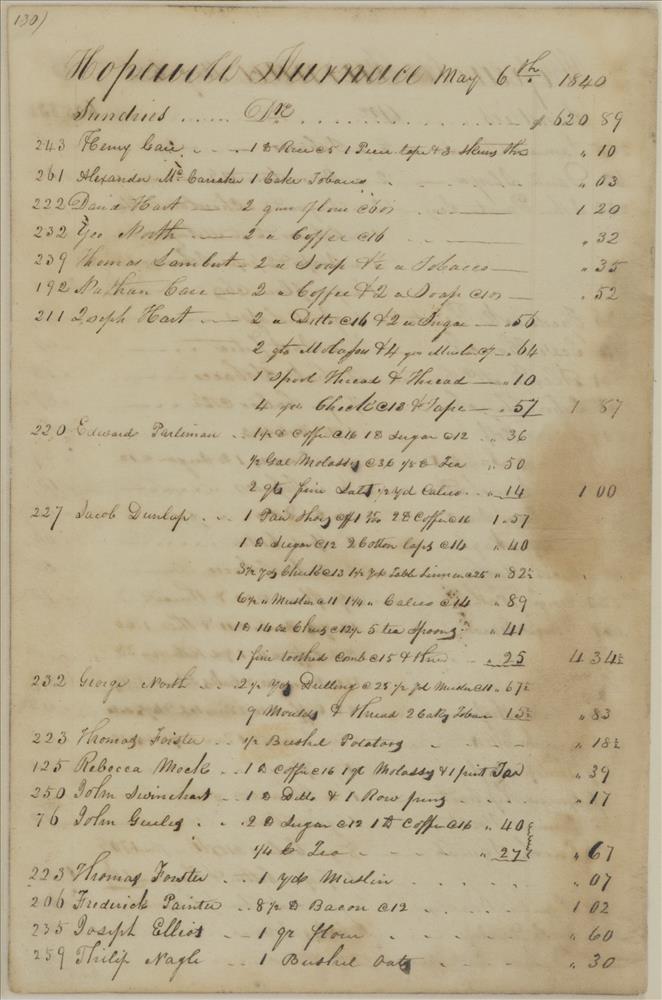 130)
Hopewell Furnace May 6th 1840
Sundries ..... Dr ............ $ 620 89
243 Henry Care .. - 1 lb Rice c5 1 Piece tape & 3 Skeins Thr " 10
261 Alexander Mc 1 Cake Tobacco " 03
222 David Hart — 2 qrs flour c60 — 1 20
232 Geo North — 2 " Coffee c16 " 32
239 Thomas Lambert - 2 " Soap & 1 " Tobacco — " 35
192 Nathan Care — 2 " Coffee & 2 " Soap c10 — " 52
211 Joseph Hart — 2 " Ditto c16 & 2 " Sugar — " 56
2 qts Molasses & 4 yds Muslin — " 64
1 Spool Thread & Thread — " 10
4 yds Check c13 & Tape — " 57 1 87
220 Edward Parliman .. 1 1/2 lb Coffee c16 1 lb Sugar c12 .. " 36
1/2 Gal Molasses c36 1/8 lb Tea " 50
2 qts fine Salt 1/2 yd Calico .. " 14 1 00
227 Jacob Dunlap .. . 1 Pair Shoes 2 lb Coffee c16 1.57
1 lb Sugar c12 2 Cotton Caps c14 " 40
3 1/2 yds Check c13 1 1/2 yds Table Linnen c25 " 82 1/2
6 1/2 " Muslin c11 1 1/4 " Calico c14 " 89
1 lb 14 oz Cheese c12 1/2 5 tea Spoons " 41
1 fine toothed Comb c15 & " 25 4 34 1/2
232 George North .. 2 1/2 yds Drilling c25 1/2 yd Muslin c11 " 67 1/2
9 Moulds & Thread 2 Cakes Tobacco 15 1/2 " 83
223 Thomas Forster .. 1/2 Bushel Potatoes " 18 1/2
125 Rebecca Mock .. 1 lb Coffee c16 1 qt Molasses & 1 pint Tar " 39
250 John Swinehart .. 1 lb Ditto & 1 Row pins .... " 17
76 John .. . 2 lb Sugar c12 1 lb Coffee c16 " 40
1/4 lb Tea " 27 " 67
223 Thomas Forster .. 1 yd Muslin " 07
206 Frederick Painter .. 8 1/2 lb Bacon c12 1 02
235 Joseph Elliot - 1 qr flour " 60
259 Philip Nagle - 1 Bushel Oats " 30